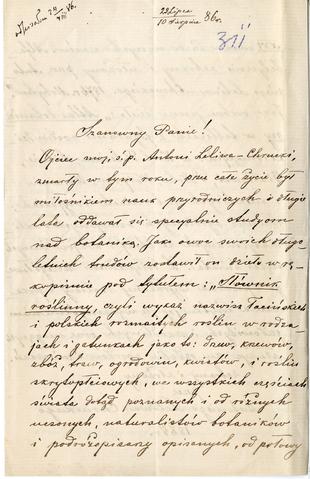 22 Lipca
10 Sierpnia 86 r.
311
Szanowny Panie!
Ojciec mój, ś.p. Antoni Leliwa-Chrucki,
zmarły w tym roku, prze całe życie był
miłośnikiem nauk przyrodniczych i długie
late oddawał się specyalnie studyom
nad botaniką. Jak owoc swoich długo-
letnich trudów zostawił on dzieło w rę-
kopiśmie pod tytułem: „Słownik
roślinny, czyli wykaz nazwisk łacińskich
i polskich rozmaitych roślin w rodza-
jach i gatunkach jako to: drzew, krzewów,
zbóż, traw, ogrodowin, kwiatów, i roślin
skrytopłciowych, we wszystkich częściach
świata dotąd poznanych i od różnych
uczonych, naturalistów botaników
i podróżopisarzy opisanych, od połowy